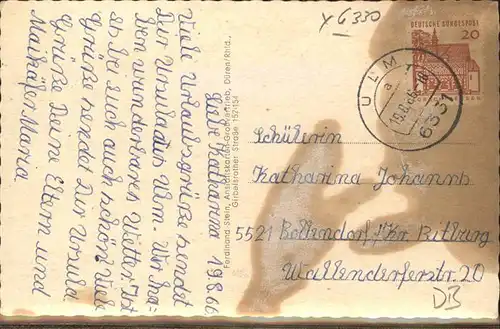 Y 6330
DEUTSCHE BUNDESPOST
20
ULM
a
6331
Liebe Katharina 19.8.66
Viele Urlaubsgrüße sendet
Dir Ursula aus Ulm. Wir
haben wunderbares Wetter. Ist
es bei euch auch schön? Viele
Grüße sendet Dir Ursula
Grüße Deine Eltern und
Maikäfer Maria
Ferdinand Stein, Ansichtskarten-Großvertrieb, Düren/Rhld.,
Girbelsrather Straße 152-154
Schülerin
Katharina Johanns
5521 Bollendorf/Kr. Bitburg
Wallendorferstr. 20
DB